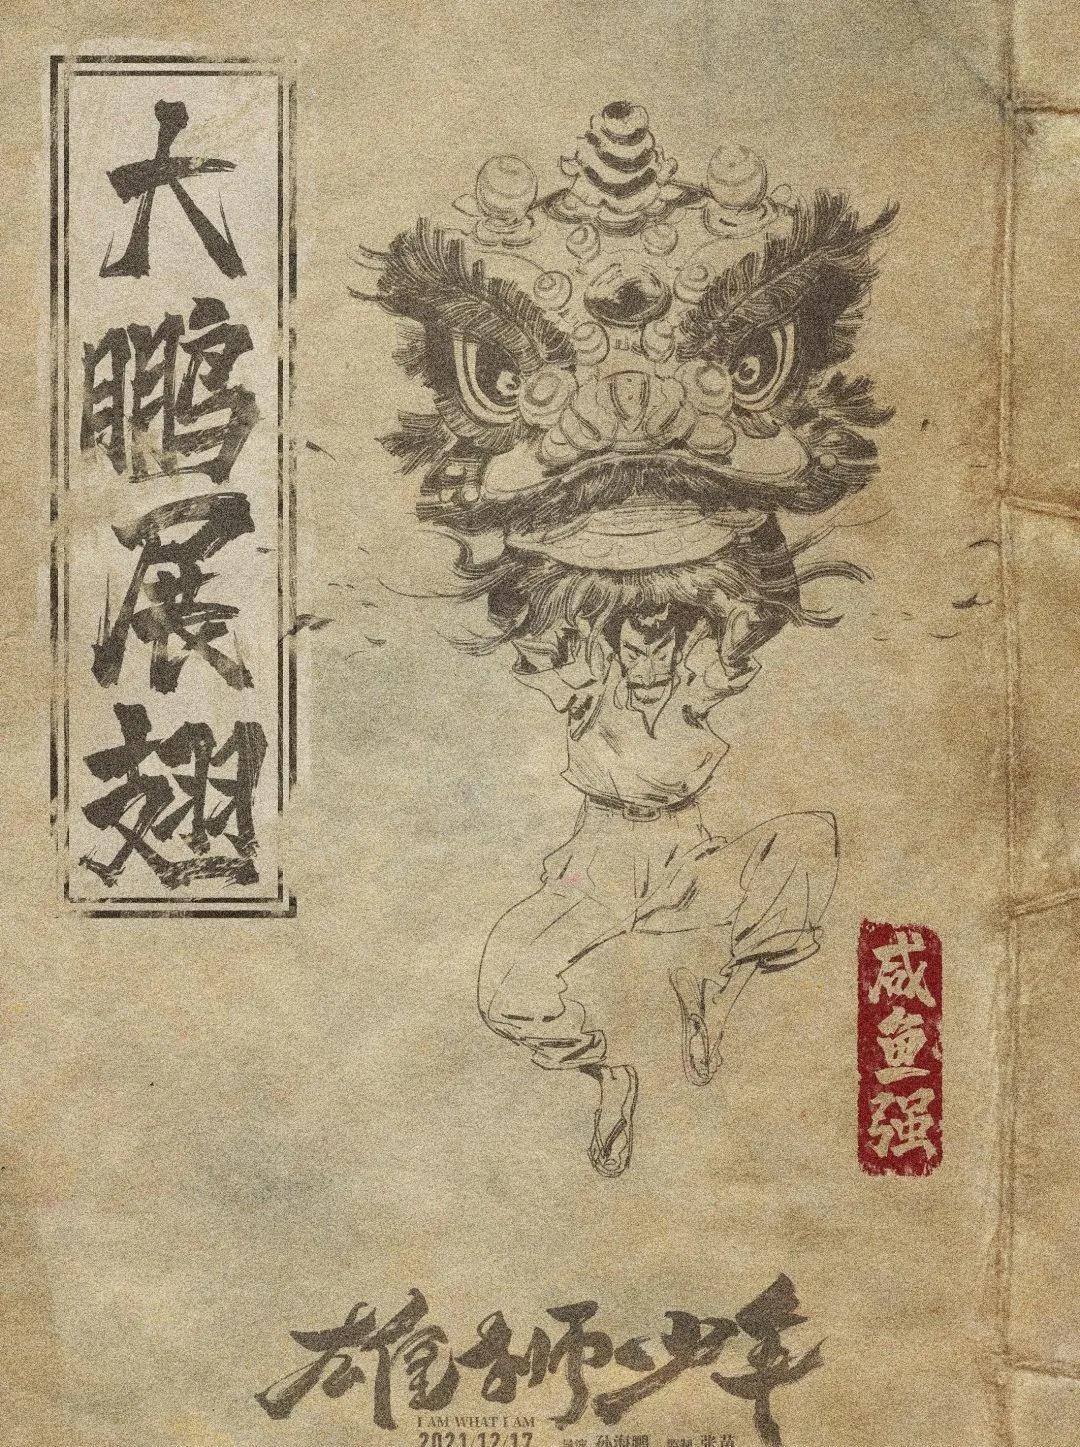 大鹏展翅
咸鱼强
雄狮少年
I AM WHAT I AM
2021/12/17 导演 孙海鹏 监制 张苗